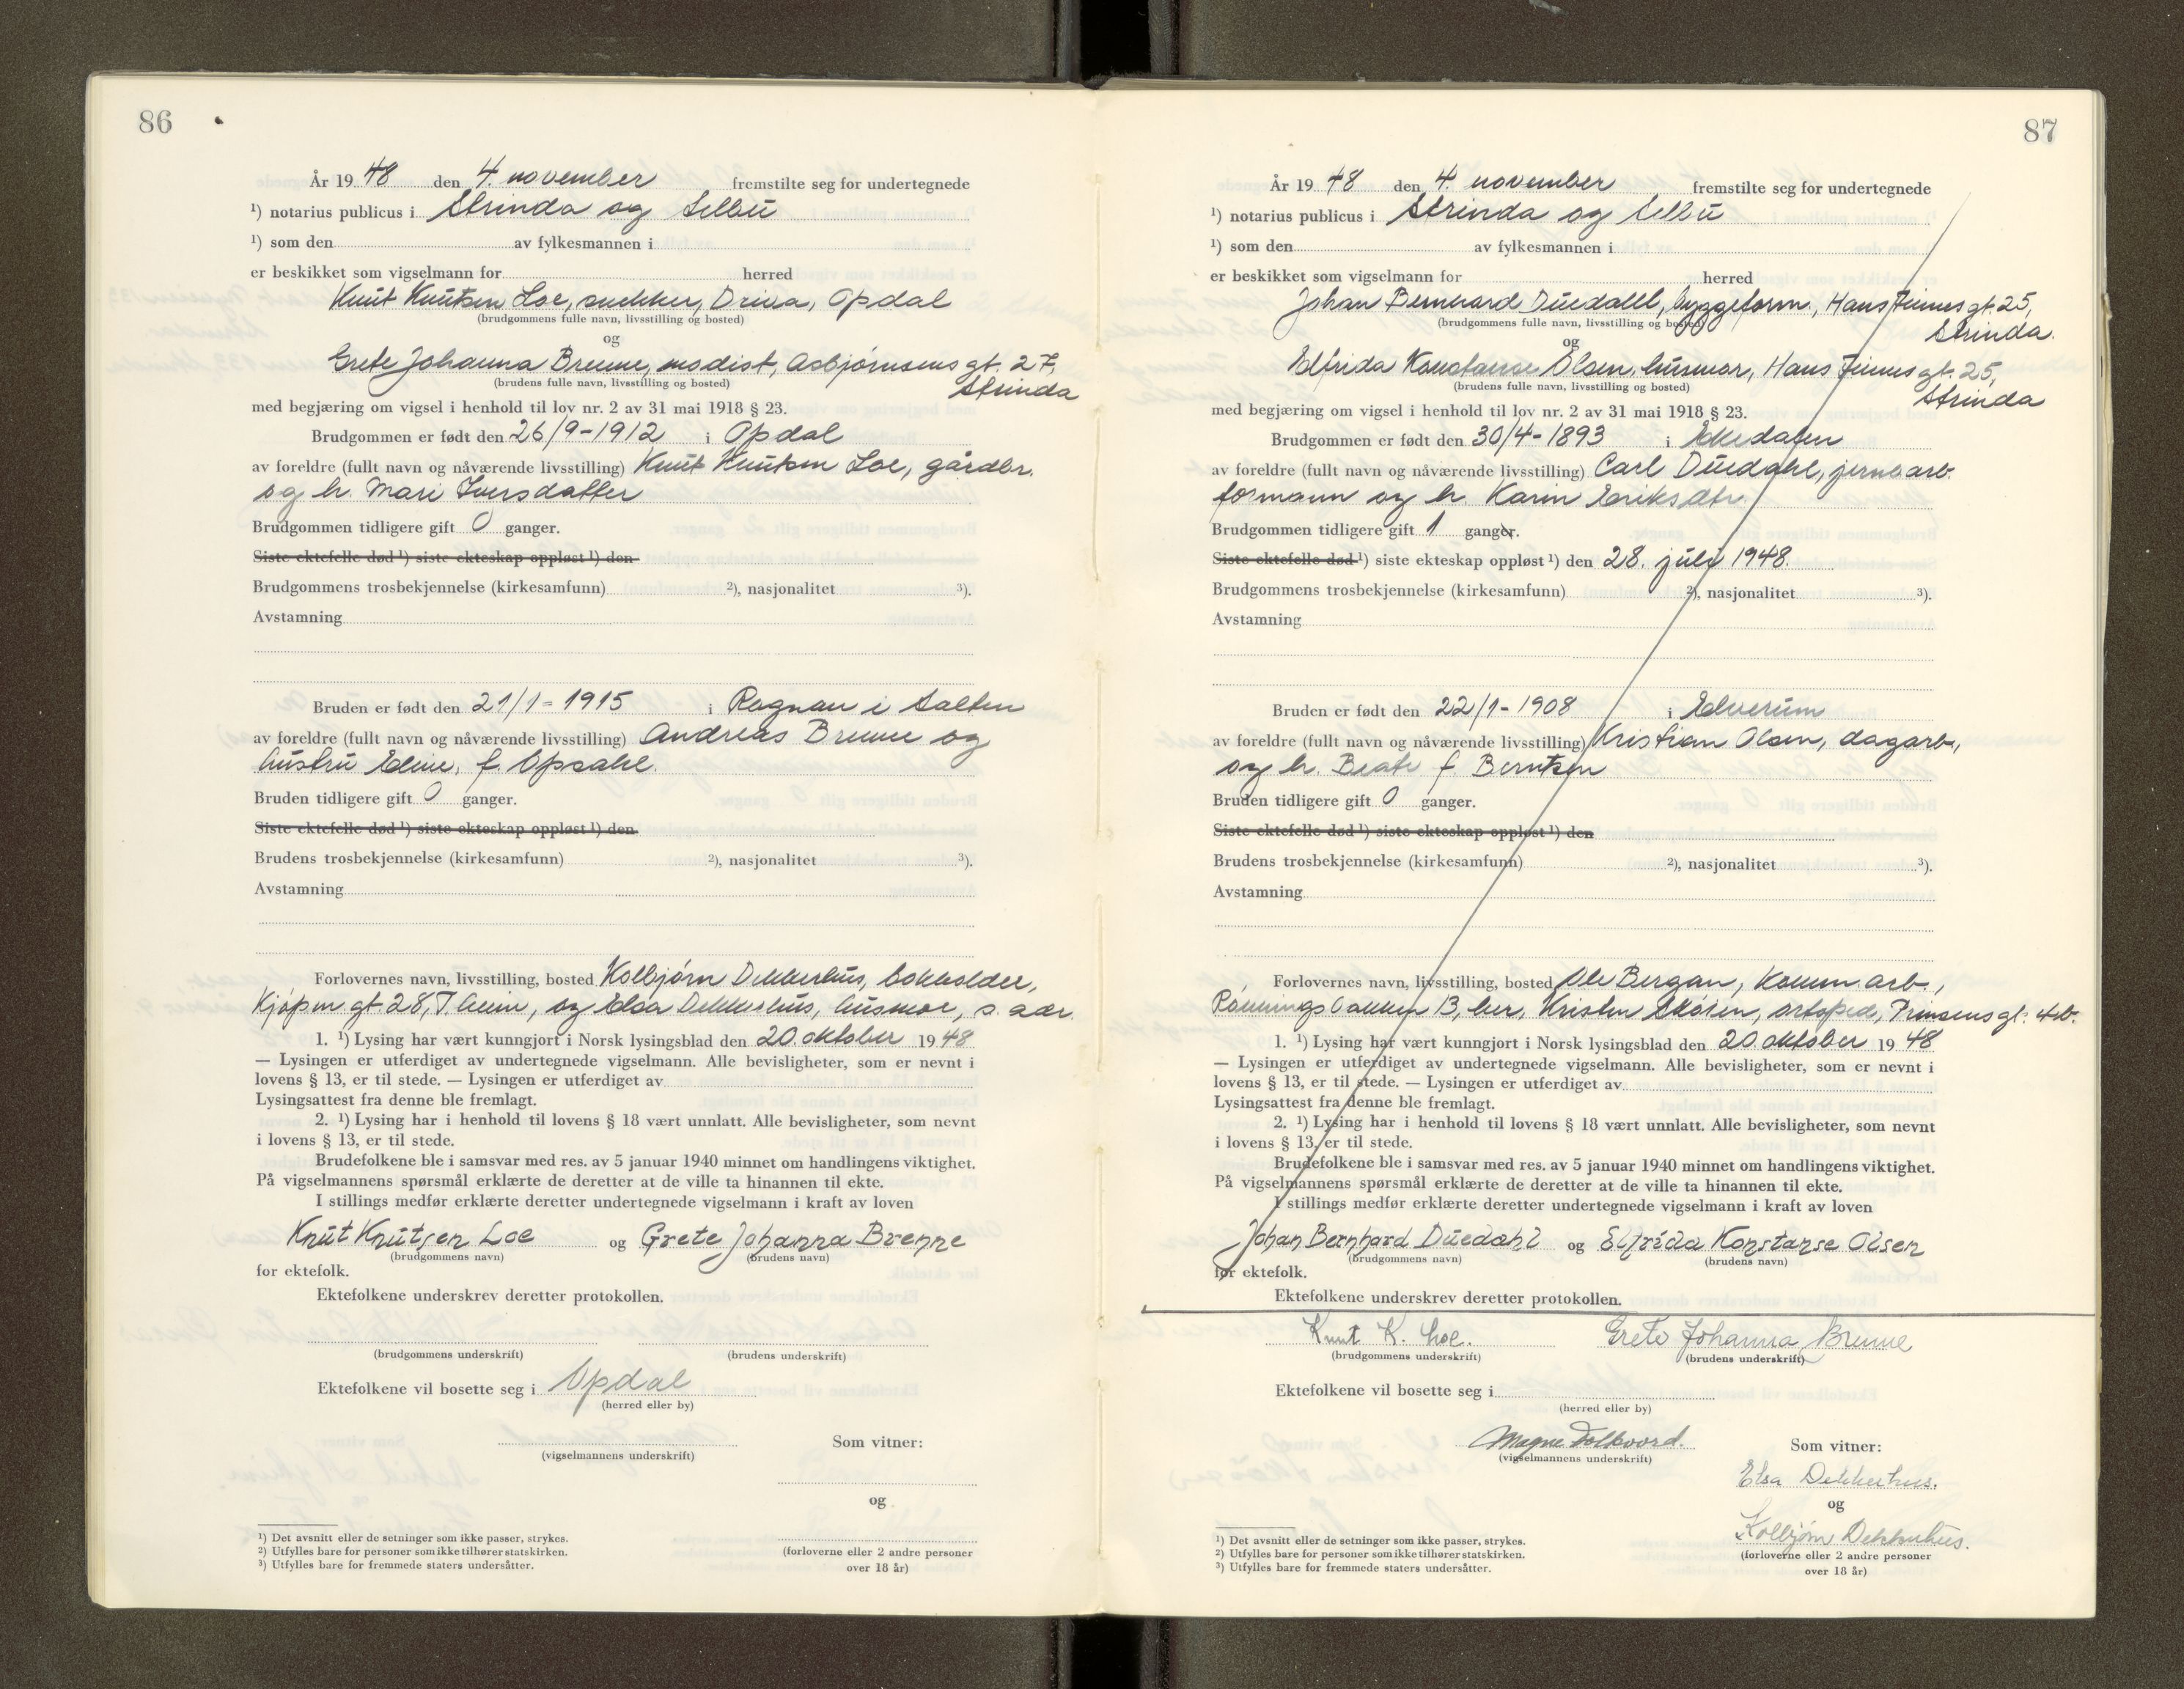 86
År 1948 den 4. november fremstilte seg for undertegnede
¹) notarius publicus i Strinda og Selbu
¹) som den av fylkesmannen i
er beskikket som vigselmann for herred
Knut Knutsen Loe, snekker, Driva, Opdal
(brudgommens fulle navn, livsstilling og bosted)
og
Grete Johanna Brenne, modist, Asbjørnsens gt. 27,
Strinda
(brudens fulle navn, livsstilling og bosted)
med begjæring om vigsel i henhold til lov nr. 2 av 31 mai 1918 § 23.
Brudgommen er født den 26/9-1912 i Opdal
av foreldre (fullt navn og nåværende livsstilling) Knut Knutsen Loe, gårdbr.
og h. Mari Iversdatter
Brudgommen tidligere gift 0 ganger.
Siste ektefelle død ¹) siste ekteskap oppløst ¹) den
Brudgommens trosbekjennelse (kirkesamfunn) ²), nasjonalitet ³).
Avstamning
Bruden er født den 21/1-1915 i Rognan i Salten
av foreldre (fullt navn og nåværende livsstilling) Andreas Brenne og
hustru Eline, f. Opsahl.
Bruden tidligere gift 0 ganger.
Siste ektefelle død ¹) siste ekteskap oppløst ¹) den
Brudens trosbekjennelse (kirkesamfunn) ²), nasjonalitet ³).
Avstamning
Forlovernes navn, livsstilling, bosted Kolbjørn Dekkerhus, bokholder,
Kjøpm. gt. 28, T.heim, og Elsa Dekkerhus, husmor, s. adr.
1. ¹) Lysing har vært kunngjort i Norsk lysingsblad den 20. oktober 1948
— Lysingen er utferdiget av undertegnede vigselmann. Alle bevisligheter, som er nevnt i
lovens § 13, er til stede. — Lysingen er utferdiget av
Lysingsattest fra denne ble fremlagt.
2. ¹) Lysing har i henhold til lovens § 18 vært unnlatt. Alle bevisligheter, som nevnt
i lovens § 13, er til stede.
Brudefolkene ble i samsvar med res. av 5 januar 1940 minnet om handlingens viktighet.
På vigselmannens spørsmål erklærte de deretter at de ville ta hinannen til ekte.
I stillings medfør erklærte deretter undertegnede vigselmann i kraft av loven
Knut Knutsen Loe og Grete Johanna Brenne
(brudgommens navn) (brudens navn)
for ektefolk.
Ektefolkene underskrev deretter protokollen.
(brudgommens underskrift) (brudens underskrift)
Ektefolkene vil bosette seg i Opdal
(herred eller by)
Som vitner:
(vigselmannens underskrift)
og
(forloverne eller 2 andre personer
over 18 år)
¹) Det avsnitt eller de setninger som ikke passer, strykes.
²) Utfylles bare for personer som ikke tilhører statskirken.
³) Utfylles bare for fremmede staters undersåtter.
87
År 1948 den 4. november fremstilte seg for undertegnede
¹) notarius publicus i Strinda og Selbu
¹) som den av fylkesmannen i
er beskikket som vigselmann for herred
Johan Bernhard Duedahl, byggeform., Hans Finnes gt. 25,
Strinda.
(brudgommens fulle navn, livsstilling og bosted)
og
Elfrida Konstanse Olsen, husmor, Hans Finnes gt. 25,
Strinda
(brudens fulle navn, livsstilling og bosted)
med begjæring om vigsel i henhold til lov nr. 2 av 31 mai 1918 § 23.
Brudgommen er født den 30/4-1893 i
av foreldre (fullt navn og nåværende livsstilling) Carl Duedahl, jernb.arb.
formann og h. Karin Eriksdtr.
Brudgommen tidligere gift 1 ganger.
Siste ektefelle død ¹) siste ekteskap oppløst ¹) den 28. juli 1948.
Brudgommens trosbekjennelse (kirkesamfunn) ²), nasjonalitet ³).
Avstamning
Bruden er født den 22/1-1908 i Elverum
av foreldre (fullt navn og nåværende livsstilling) Kristian Olsen, dagarb.,
og h. Beate f. Berntsen
Bruden tidligere gift 0 ganger.
Siste ektefelle død ¹) siste ekteskap oppløst ¹) den
Brudens trosbekjennelse (kirkesamfunn) ²), nasjonalitet ³).
Avstamning
Forlovernes navn, livsstilling, bosted Ole Bergan, komm. arb.,
Rønningsbakken 13, her, Kristen Skøien, ortoped, Prinsens gt. 4b.
1. ¹) Lysing har vært kunngjort i Norsk lysingsblad den 20. oktober 1948
— Lysingen er utferdiget av undertegnede vigselmann. Alle bevisligheter, som er nevnt i
lovens § 13, er til stede. — Lysingen er utferdiget av
Lysingsattest fra denne ble fremlagt.
2. ¹) Lysing har i henhold til lovens § 18 vært unnlatt. Alle bevisligheter, som nevnt
i lovens § 13, er til stede.
Brudefolkene ble i samsvar med res. av 5 januar 1940 minnet om handlingens viktighet.
På vigselmannens spørsmål erklærte de deretter at de ville ta hinannen til ekte.
I stillings medfør erklærte deretter undertegnede vigselmann i kraft av loven
Johan Bernhard Duedahl og Elfrida Konstanse Olsen
(brudgommens navn) (brudens navn)
for ektefolk.
Ektefolkene underskrev deretter protokollen.
Knut K. Loe. Grete Johanna Brenne
(brudgommens underskrift) (brudens underskrift)
Ektefolkene vil bosette seg i
(herred eller by)
Magne Folkvord.
Som vitner:
(vigselmannens underskrift)
Elsa Dekkerhus.
og
Kolbjørn Dekkerhus.
(forloverne eller 2 andre personer
over 18 år)
¹) Det avsnitt eller de setninger som ikke passer, strykes.
²) Utfylles bare for personer som ikke tilhører statskirken.
³) Utfylles bare for fremmede staters undersåtter.